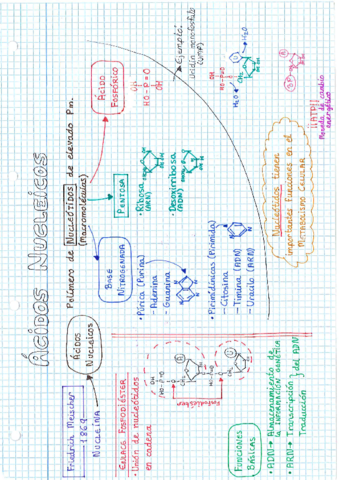 ÁCIDOS NUCLEICOS
Friedrich Meischer
- 1869
NUCLEÍNA
Ácidos
Nucleicos
Polímero de NUCLEÓTIDOS de elevado Pm.
(Macromoléculas)
BASE
NITROGENADA
• Púrica (Purina)
- Adenina
- Guanina
• Pirimidínicas (Pirimida)
- Citosina
- Timina (ADN)
- Uracilo (ARN)
PENTOSA
• Ribosa
(ARN)
• Desoxirribosa
(ADN)
ÁCIDO
FOSFÓRICO
OH
HO-P=O
OH
Ejemplo:
Uridín monofosfato
(UMP)
H₂O
H₂O
¡¡ATP!!
Moneda de cambio
energético
Nucleótidos tienen
importantes Funciones en el
METABOLISMO CELULAR
ENLACE FOSFODIÉSTER
• Unión de nucleótidos
en cadena
Fosfodiéster
FUNCIONES
BÁSICAS
• ADN → Almacenamiento de
la INFORMACIÓN GENÉTICA
• ARN → Transcripción y del ADN
Traducción